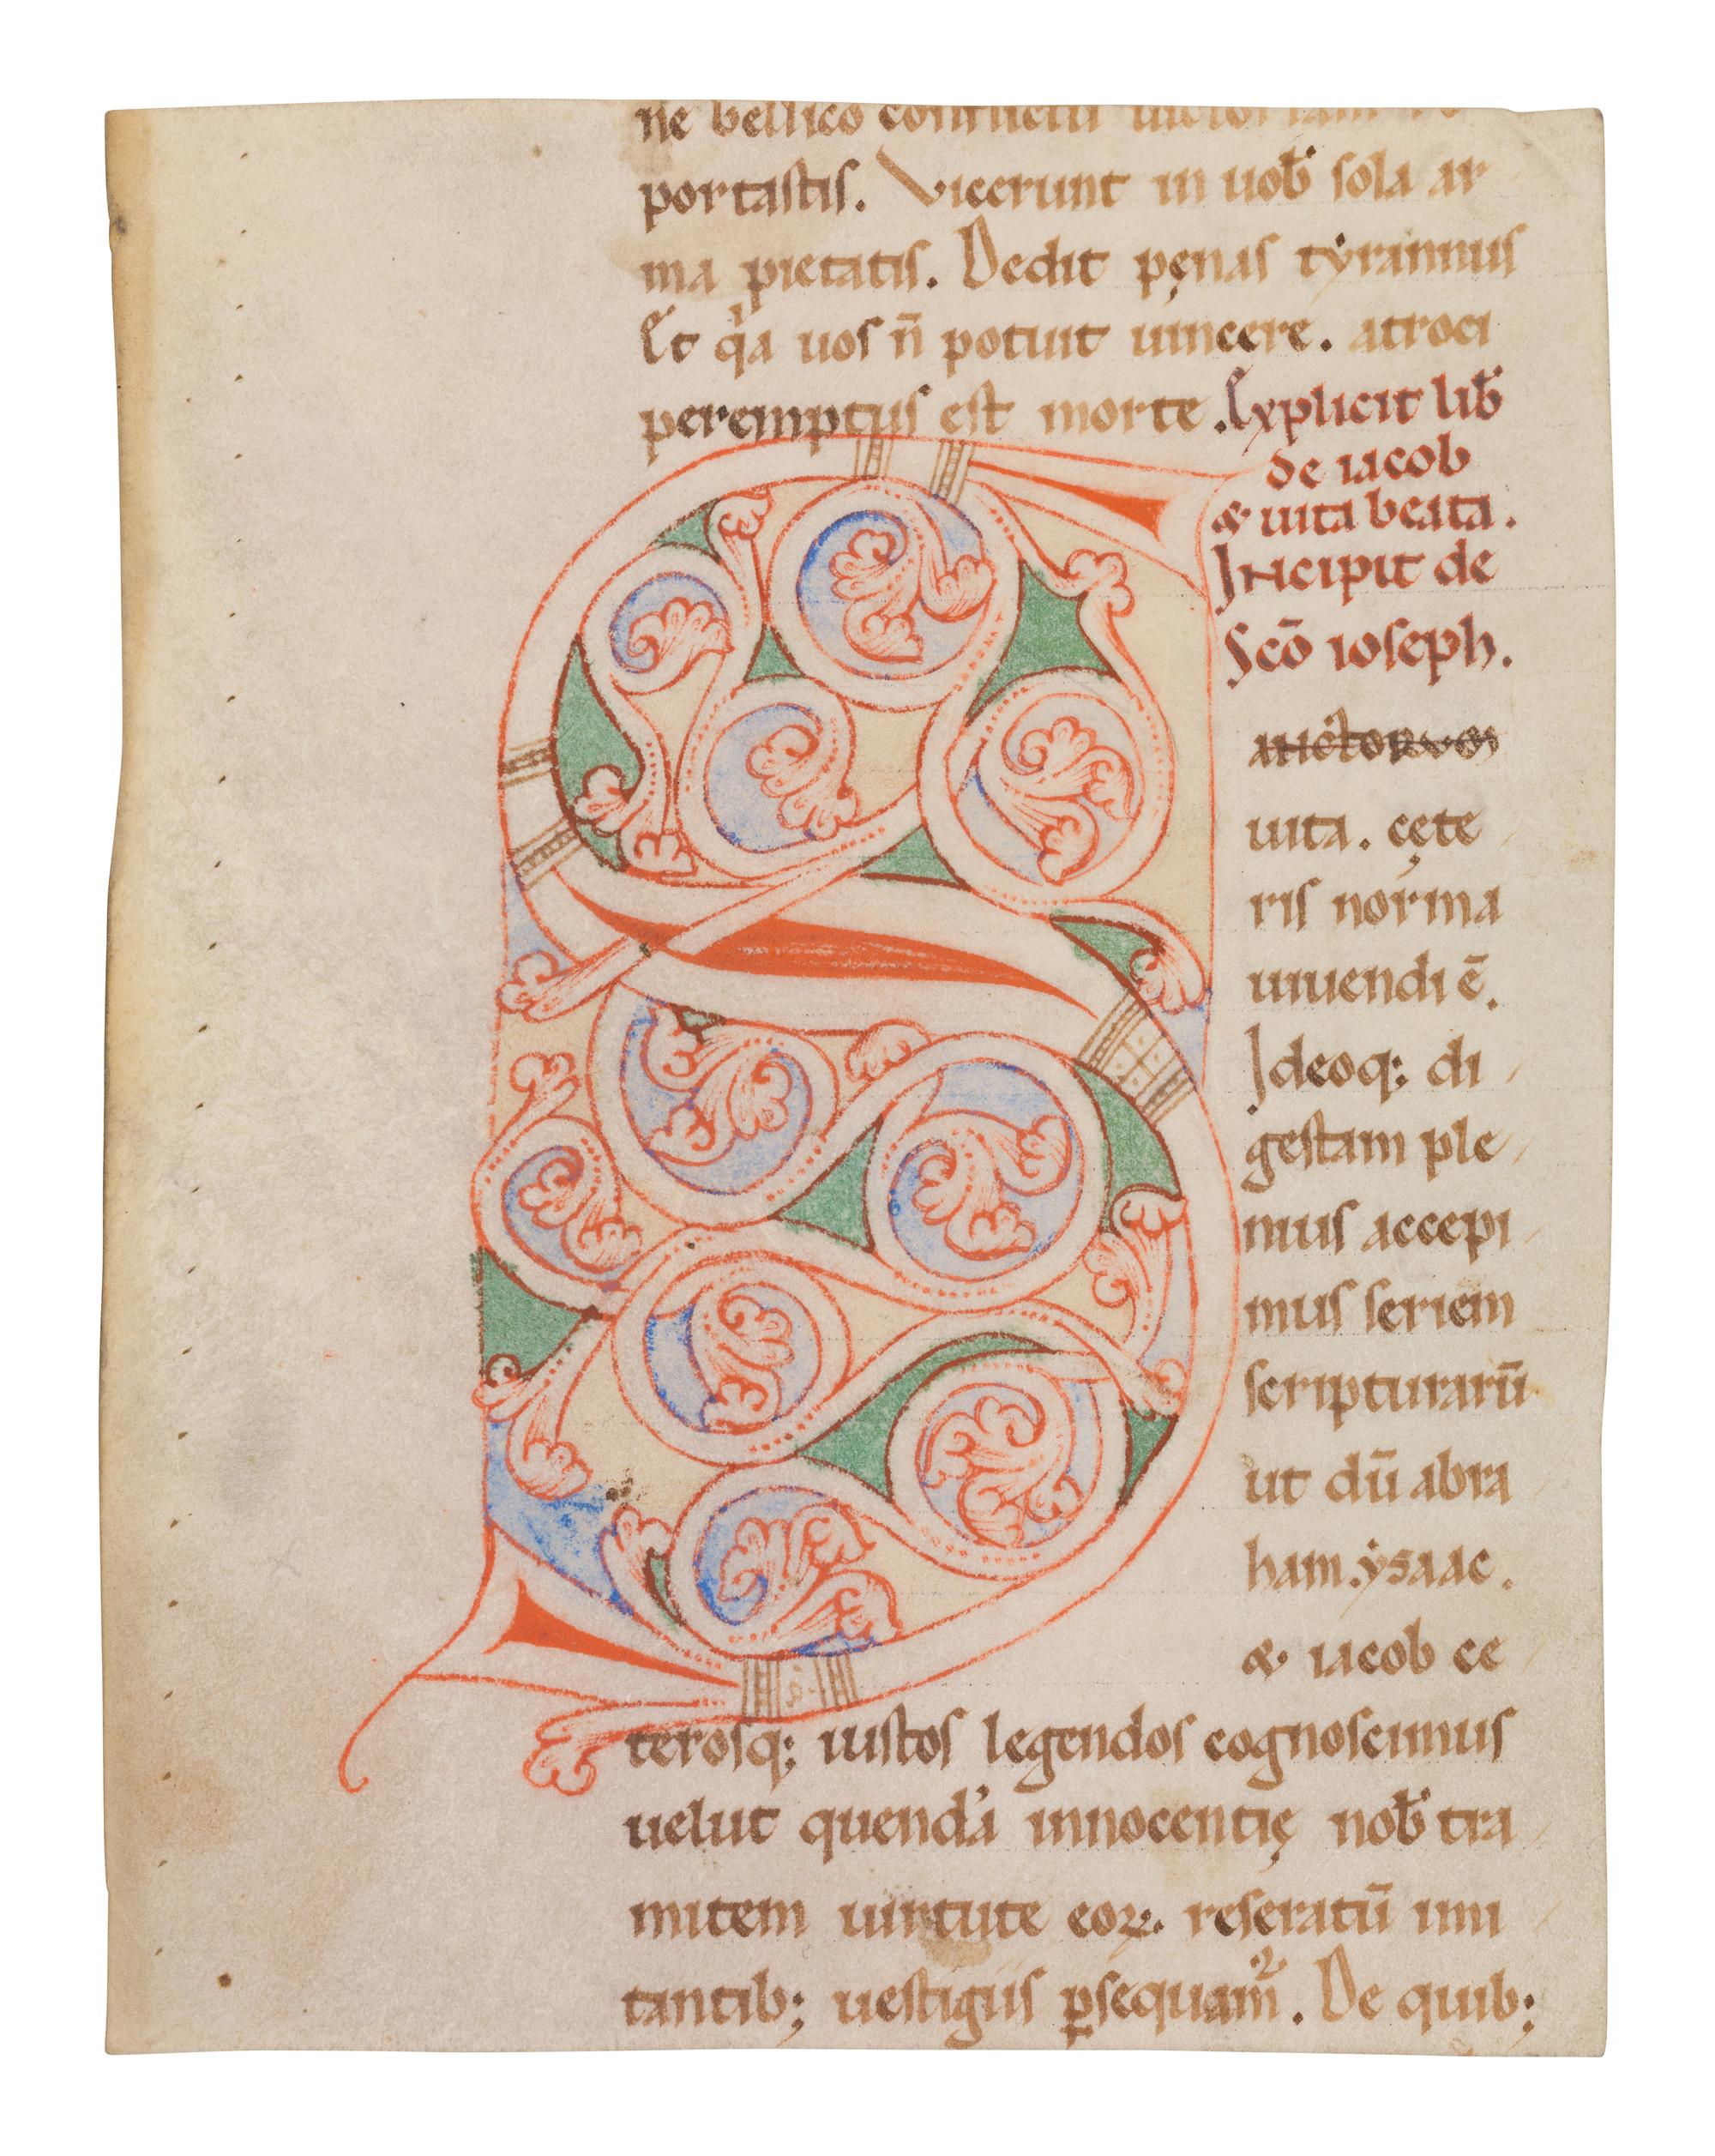 ne bellico conflictu uictoriam re
portastis. Vicerunt in uob̅ sola ar
ma pietatis. Dedit pęnas tẏrannus
Et qͥa uos n̅ potuit uincere. atroci
peremptus est morte. Explicit lib̅
de iacob
& uita beata.
Incipit de
Sco̅ ioseph.
S
anctorum
uita. cęte
ris norma
uiuendi ē.
Ideoq; di
gestam ple
mus accepi
mus seriem
scripturarū
ut dū abra
ham. ẏsaac.
& iacob ce
terosq; iustos legendos cognoscimus
uelut quendā innocentię nob̅ tra
mitem uirtute eoꝝ. reseratū imi
tantib; uestigiis ꝑsequam̅. De quib;